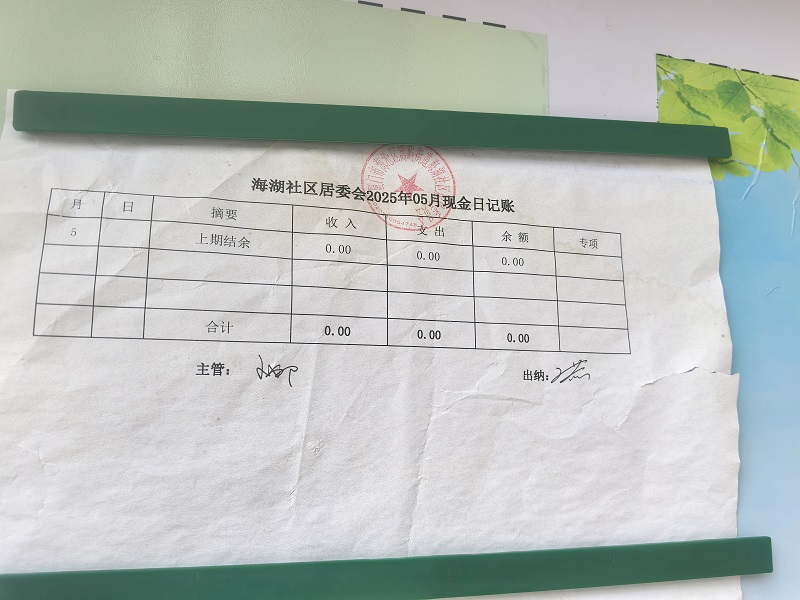 海湖社区居委会2025年05月现金日记账
月 日 摘要 收入 支出 余额 专项
5 上期结余 0.00 0.00 0.00
合计 0.00 0.00 0.00
主管: 出纳: